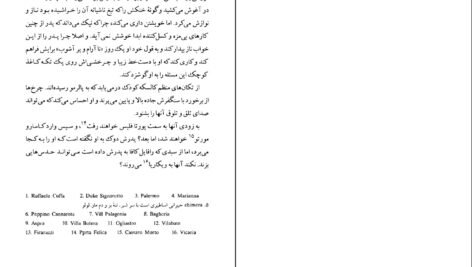 در آغوش می‌کشید و گونهٔ خنکش را که تیغ ناشیانه آن را خراشیده بود نیاز و
نوازش می‌کرد. اما خویشتن داری می‌کند، چراکه نیک می‌داند که پدر از چنین
کارهای بی‌مزه و کسل‌کننده ابدا خوشش نمی‌آید. و اصلا چرا پدر را از
خواب ناز بیدار کند و به قول خود او یک روز «ناآرام و پر آشوب» برایش فراهم
کند و کاری کند که او با دست‌خط زیبا و چرخشی‌اش روی یک تکه کاغذ
کوچک این مسئله را به او گوشزد کند.
از تکان‌های منظم کالسکه کودک درمی‌یابد که به پالرمو رسیده‌اند. چرخ‌ها
از برخورد با سنگفرش جاده بالا و پایین می‌پرند و او احساس می‌کند که می‌تواند
صدای تلق و تلوق آنها را بشنود.
به زودی آنها به سمت پورتا فلیس خواهند رفت۱۴، و سپس وارد کاسارو
مورتو۱۵ خواهند شد، اما بعد؟ پدرش دوک به او نگفته است که او را به کجا
می‌برد، اما از سبدی که رافایل کافا به پدرش داده است می‌تواند حدس‌هایی
بزند. نکند آنها به ویکاریا۱۶ می‌روند؟
1. Raffaele Cuffa 2. Duke Signoretto 3. Palermo 4. Marianna
5. chimera حیوانی اساطیری است با سر شیر، تنهٔ بز و دم مار
6. Peppino Cannarota 7. Vill Palagonia 8. Bagheria
9. Aspra 10. Villa Butera 11. Ogliastro 12. Villabate
13. Ficarazzi 14. Pprta Felice 15. Cassaro Morto 16. Vicaria